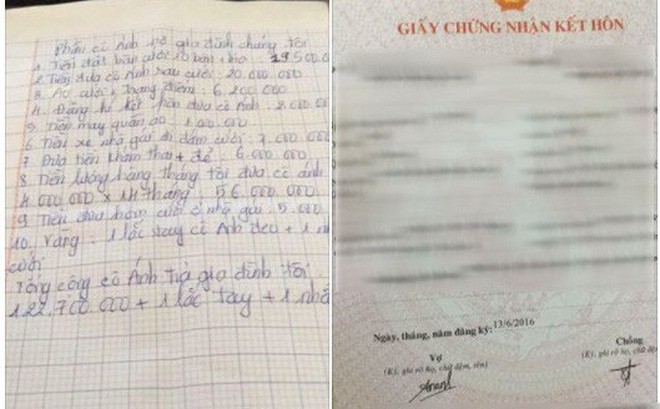 Phần cô Ánh trả gia đình chúng tôi
1. Tiền đặt bàn cưới 10 bàn + bia : 19.500.0
2. Tiền đưa cô Ánh sau cưới : 20.000.000
3. Áo cưới + trang điểm : 6.200.000
4. Đăng kí kết hôn đưa cô Ánh : 2.000.000
5. Tiền may quần áo : 1.000.000
6. Tiền xe nhà gái đi đám cưới : 7.000.000
7. Đưa tiền khám thai + đẻ : 6.000.000
8. Tiền lương hàng tháng tôi đưa cô ánh
4.000.000 x 14 tháng : 56.000.000
9. Tiền đưa hôm cưới ở nhà gái : 5.000
10. Vàng : 1 lắc tay cô Ánh đeo + 1 nh
cưới
Tổng cộng cô Ánh trả gia đình tôi
122.700.000 + 1 lắc tay + 1 nhẫ
GIẤY CHỨNG NHẬN KẾT HÔN
Ngày, tháng, năm đăng ký: 13/6/2016
Vợ
(Ký, ghi rõ họ, chữ đệm, tên)
Chồng
(Ký, ghi rõ họ, chữ đệm